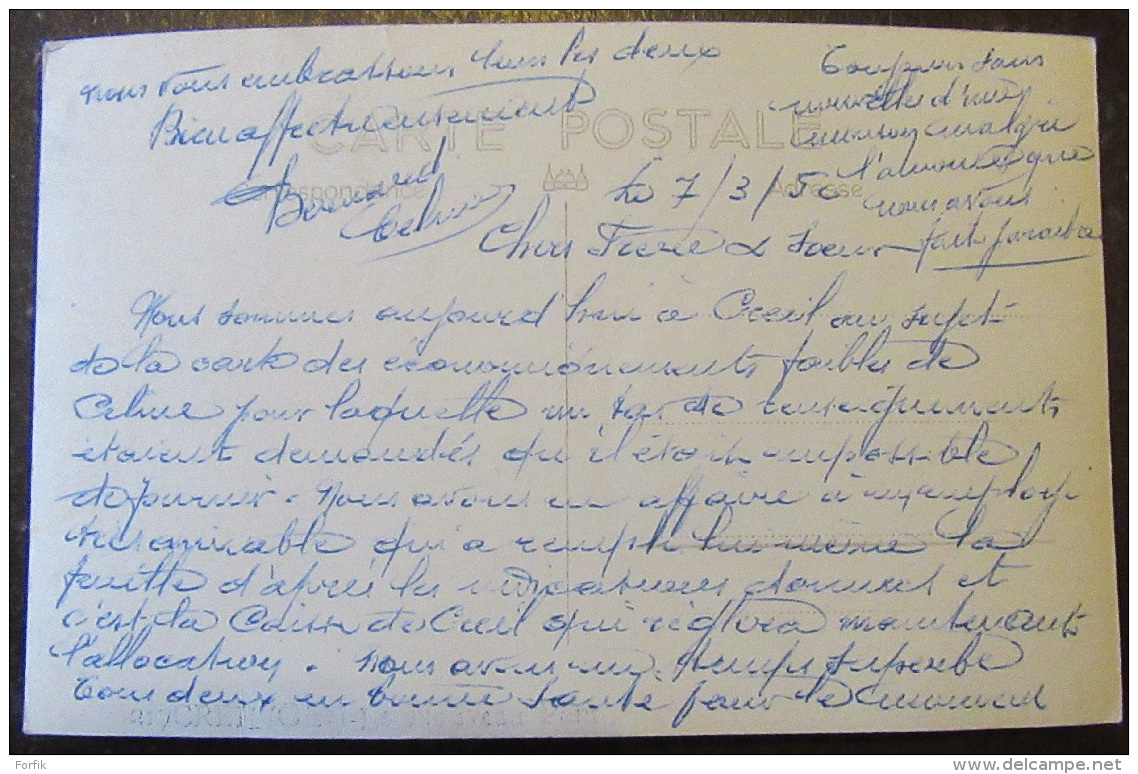 Le 7/3/50
Chers Frère & Soeur
Nous sommes aujourd'hui à Creil au sujet
de la carte des économiquements faibles de
Celine pour laquelle un tas de renseignements
étaient demandés qu'il était impossible
de fournir. Nous avons eu affaire à un employé
très aimable qui a rempli lui même la
feuille d'après les indications données et
c'est la Caisse de Creil qui règlera maintenant
l'allocation. Nous avons un temps superbe
Tous deux en bonne santé pour le moment
nous vous embrassons tous les deux
Bien affectueusement
Bernard
Celine
Toujours sans
nouvelles d'une
maison malgré
l'annonce que
nous avons
fait paraitre
CARTE POSTALE
Correspondance
Adresse
Forfik
www.delcampe.net